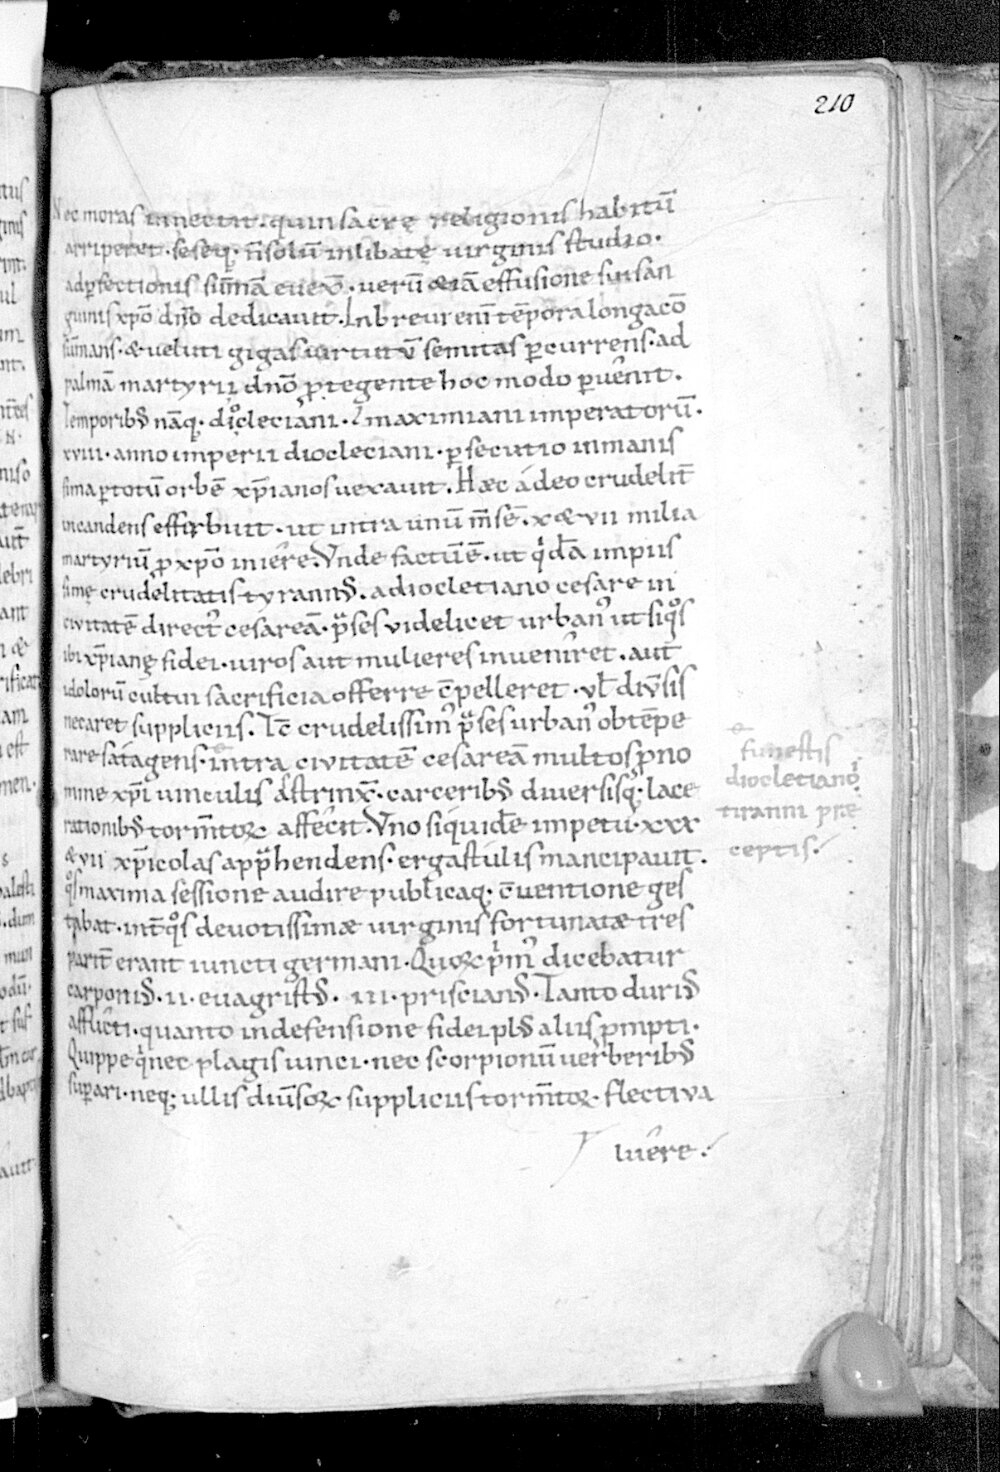 210
Nec moras innectit. quin sacrę religionis habitū
arriperet. seseq; n̄ solū inlibatę virginis studio.
ad ꝑfectionis sūmā euexꝭ. uerū & iā effusione sui san
guinis xp̄o dn̄o dedicauit. In breui enī tēpora longa cō
sūmans. & ueluti gigas uirtutū semitas ꝑcurrens. ad
palmā martyrii dn̄o ꝓtegente hoc modo ꝑuenit.
Temporibꝰ nāq; diocleciani. & maximiani imperatorū.
xviii. anno imperii diocleciani. ꝑsecutio inmanis
sima ꝑ totū orbē xp̄ianos uexauit. Hæc ádeo crudelit̄
incandens efferbuit. ut intra unū m̄sē. x & vii milia
martyriū ꝓ xp̄o iniere. Vnde factū ē. ut qͥdā impiis
simę crudelitatis tyrannꝰ. a diocletiano cesare in
civitatē directꝰ cesareā. p̄ses videlicet urbanꝰ ut siqͦs
ibi xp̄ianę fidei. uiros aut mulieres inveniret. aut
idolorū cultui sacrificia offerre cōpelleret. ul̄ diūsis
necaret suppliciis. Tc̄ crudelissimꝰ p̄ses urbanꝰ obtēpe
rare satagens. intra civitatē cesareā multos ꝓ no
mine xp̄i uinculis astrinxꝭ. carceribꝰ diversisq; lace
rationibꝰ torm̄toꝝ affecit. Vno siquidē impetu. xxx
& vii xp̄icolas app̄hendens. ergastulis mancipauit.
qͦs maxima sessione audire publicaq; cōuentione ges
tabat. int̄ qͦs devotissimæ virginis fortunatæ tres
parit̄ erant iuncti germani. Quoꝝ pͥmꝰ dicebatur
carponiꝰ. ii. evagristꝰ. iii. priscianꝰ. Tanto duriꝰ
afflicti. quanto in defensione fidei plꝰ aliis ꝓmpti.
Quippe qͥ nec plagis uinci. nec scorpionū uerberibꝰ
suꝑari. neq; ullis diūsoꝝ suppliciis torm̄toꝝ. flecti va
luere.
funestis
diocletiani
tiranni pre
ceptis.